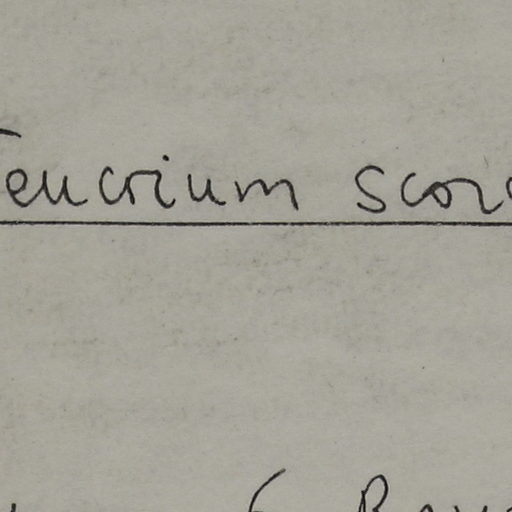 Teucrium scor